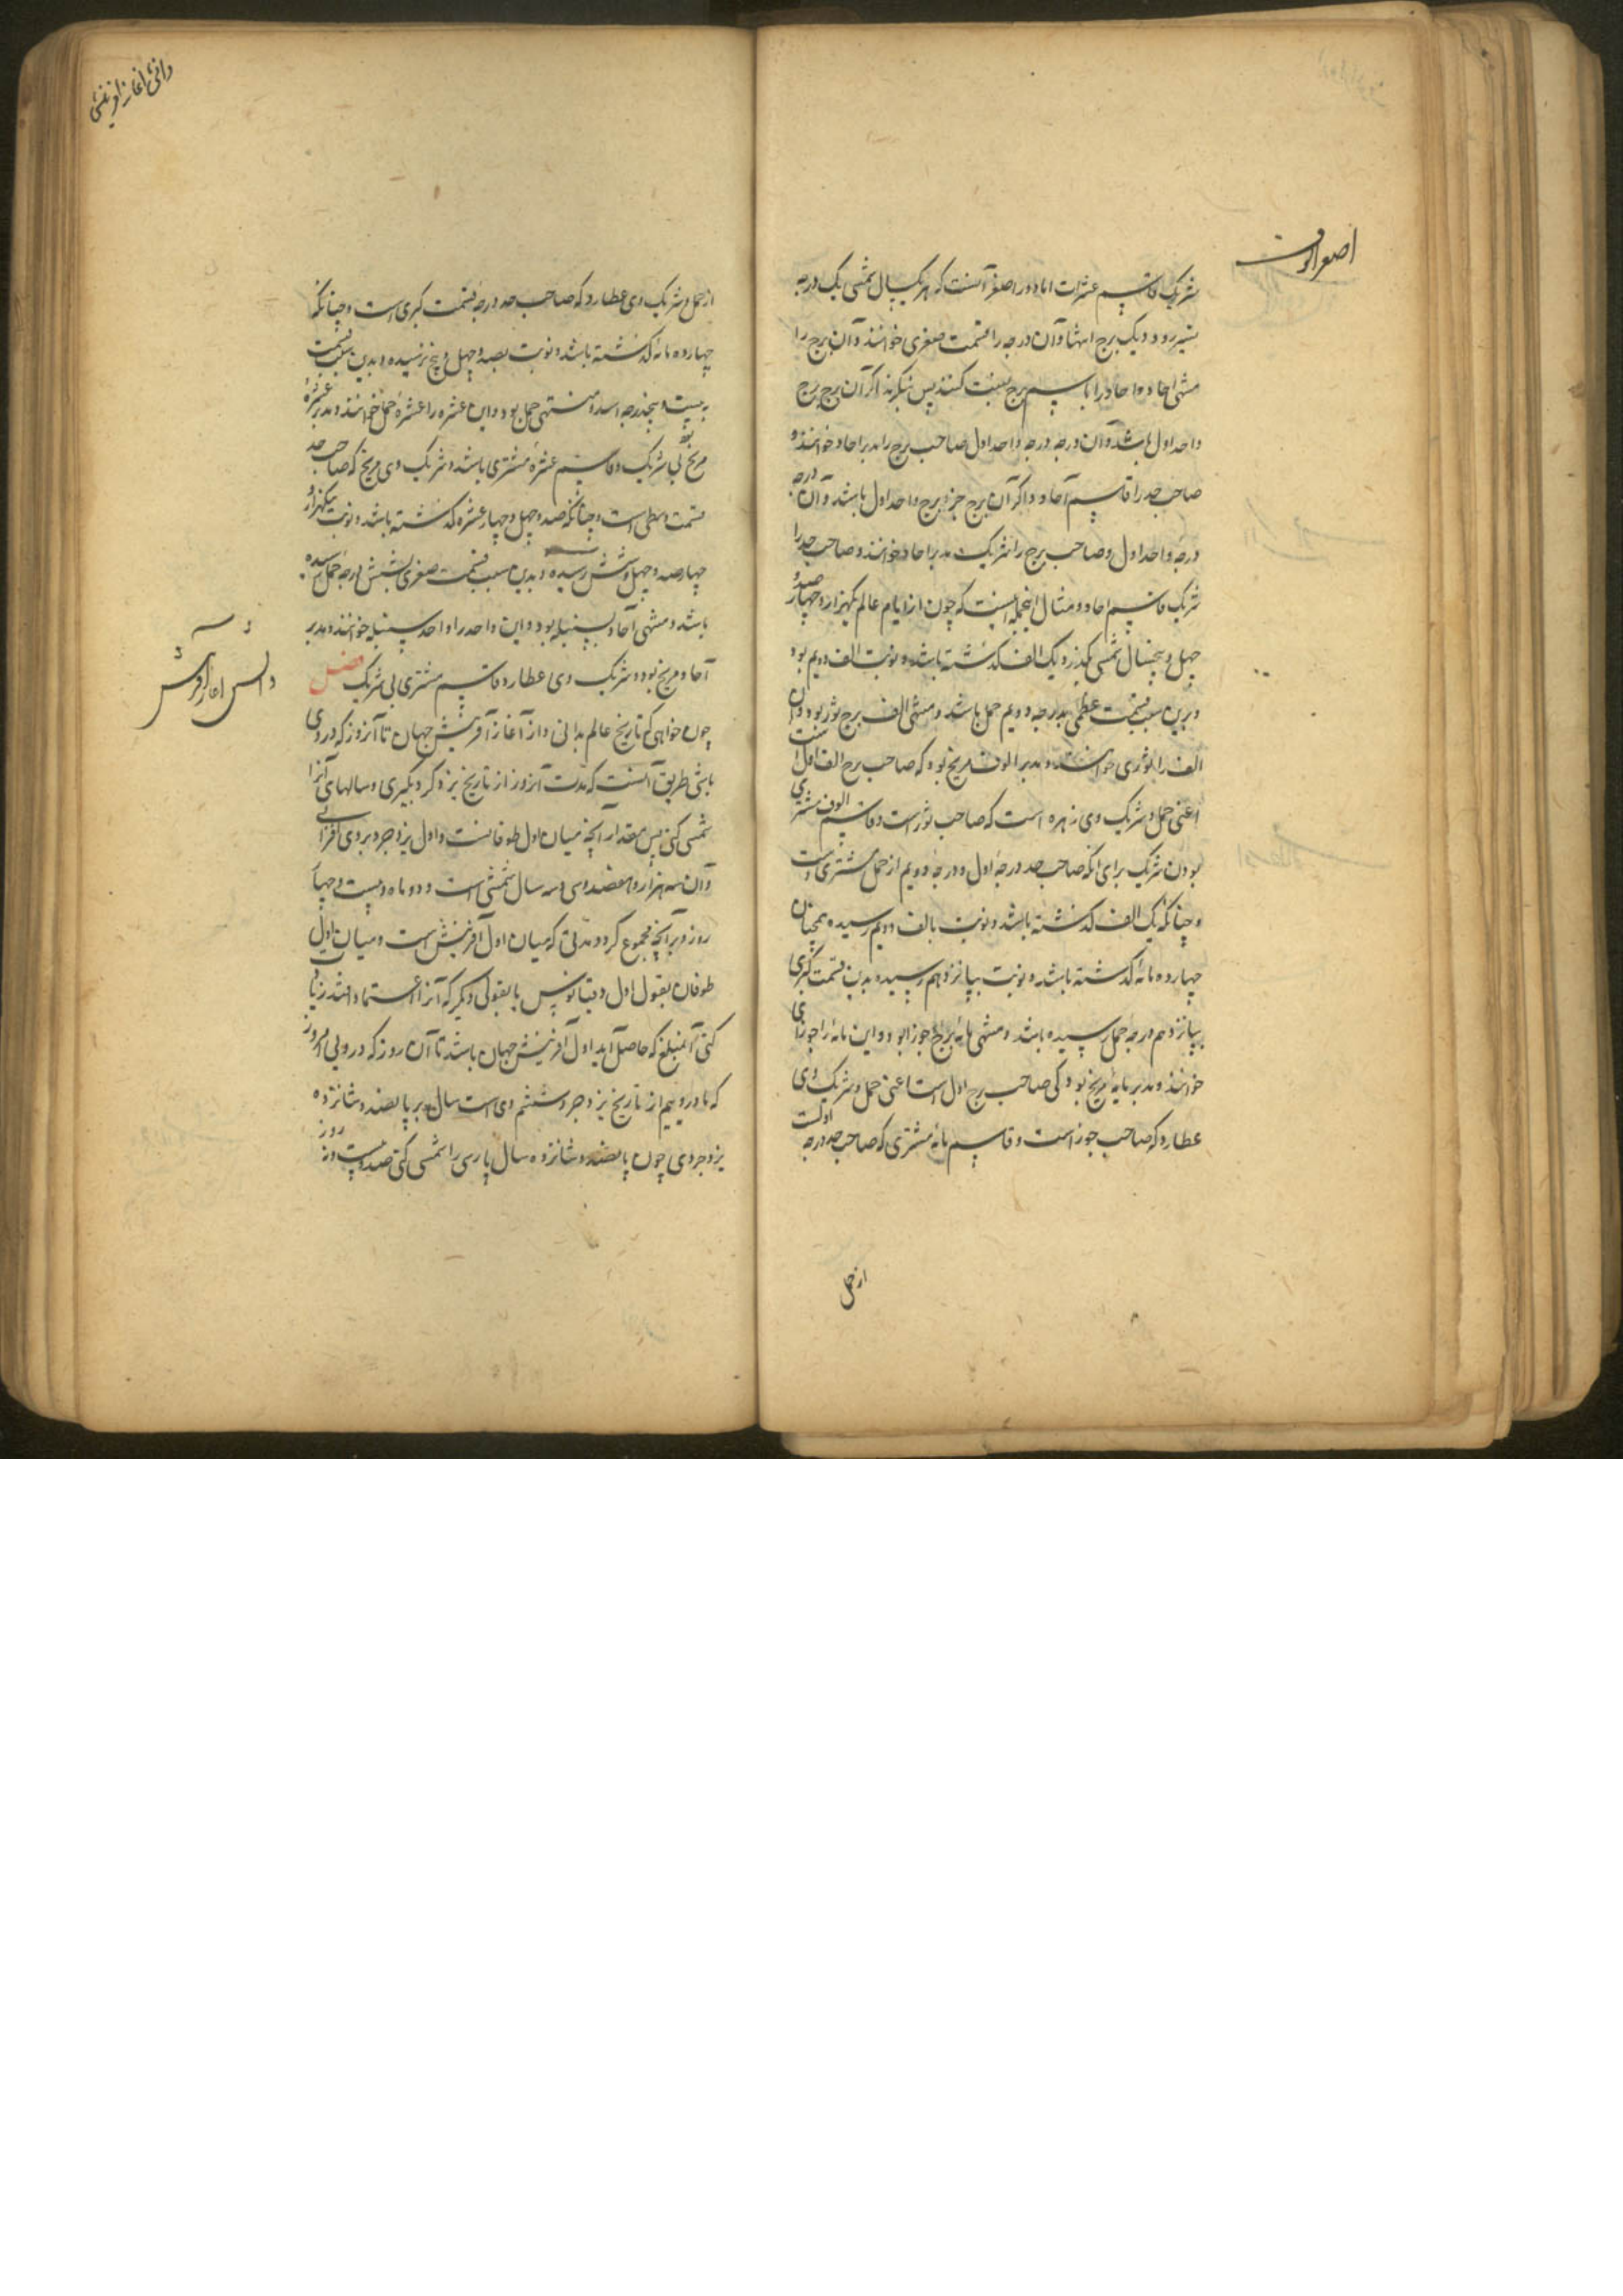 شریک قاسم عشرات اما دور اصغر آنست که بهر یک سال شمسی یک درجه
تسییر رود و یک برج انتها و آن درجه را قسمت صغری خوانند و آن برج را
منتهی احاد و احاد را باسم برج نسبت کنند پس بنگرند اگر آن برج برج
واحد اول باشد و آن درجه درجهٔ واحد اول صاحب برج را مدبر احاد خوانند و
صاحب حد را قاسم آحاد و اگر آن برج جز برج واحد اول باشد و آن درجه
درجهٔ واحد اول و صاحب برج را شریک مدبر احاد خوانند و صاحب حد را
شریک قاسم احاد و مثال اینجمله اینست که چون از ایام عالم یکهزار و چهارصد و
چهل و پنجسال شمسی بگذرد یک الف گذشته باشد و نوبت الف دویم بود
و بدین سبب قسمت عظمی بدرجه دویم حمل باشد و منتهی الف برج ثور بود و آن
الف را ثوری خوانند و مدبر الوف مریخ بود که صاحب برج الف اول است
اعنی حمل و شریک وی زهره است که صاحب ثور است و قاسم الوف مشتری
بودن شریک برای آنکه صاحب حد درجهٔ اول و درجهٔ دویم از حمل مشتری است
و چنانکه یک الف گذشته باشد و نوبت بالف دویم رسیده همچنان
چهارده مائه گذشته باشد و نوبت بپانزدهم رسیده بدین قسمت کبری
بپانزدهم درجه حمل رسیده باشد و منتهی مائه برج جوزا بود و این مائه را جوزائی
خوانند و مدبر مایه مریخ بود کی صاحب برج اول است اعنی حمل و شریک وی
عطارد که صاحب جوزاست و قاسم مائه مشتری که صاحب حد درجه اولست
از حمل
اصغر الوف
دانش آغاز آفرینش
از حمل و شریک وی عطارد که صاحب حد درجهٔ قسمت کبری است و چنانکه
چهارده مائه گذشته باشد و نوبت بصد و چهل و پنج رسیده و بدین سبب قسمت
به بیست و پنجدرجه اسد و منتهی حمل بود و این عشره را عشرهٔ حمل خوانند و مدبر عشره
مریخ بی شریک و قاسم عشره مشتری باشد و شریک وی مریخ که صاحب حد
قسمت وسطی است و چنانکه صد و چهل و چهار عشره گذشته باشد و نوبت بیکهزار و
چهارصد و چهل و شش رسیده و بدین سبب قسمت صغری بشش درجه حمل رسیده
باشد و منتهی آحاد سنبله بود و این واحد را واحد سنبله خوانند و مدبر
آحاد مریخ بود و شریک وی عطارد و قاسم مشتری بی شریک فصل
چون خواهی که تاریخ عالم بدانی و از آغاز آفرینش جهان تا آنروز که در وی
باشی طریق آنست که مدت آنروز از تاریخ یزدگرد بگیری و سالهای آنرا
شمسی کنی پس مقدار آنچه میان اول طوفانست و اول یزدجرد بر وی افزائی
و آن سه هزار و هفصد و سی و سه سال شمسی است و دو ماه و بیست و چهار
روز و بر آنچه مجموع گردد مدتی که میان اول آفرینش است و میان اول
طوفان بقول اول دقیتانوس یا بقولی دیگر که آنرا اعتماد افتد زیادت
کنی آنمبلغ که حاصل آید اول آفرینش جهان باشد تا آن روز که در وی امروز
که ما درو ییم از تاریخ یزدجرد ششم دی است سال بر پانصد و شانزده
یزدجردی چون پانصد و شانزده سال پارسی را شمسی کنی صد و بیست و نه روز
دانش آغاز آفرینش